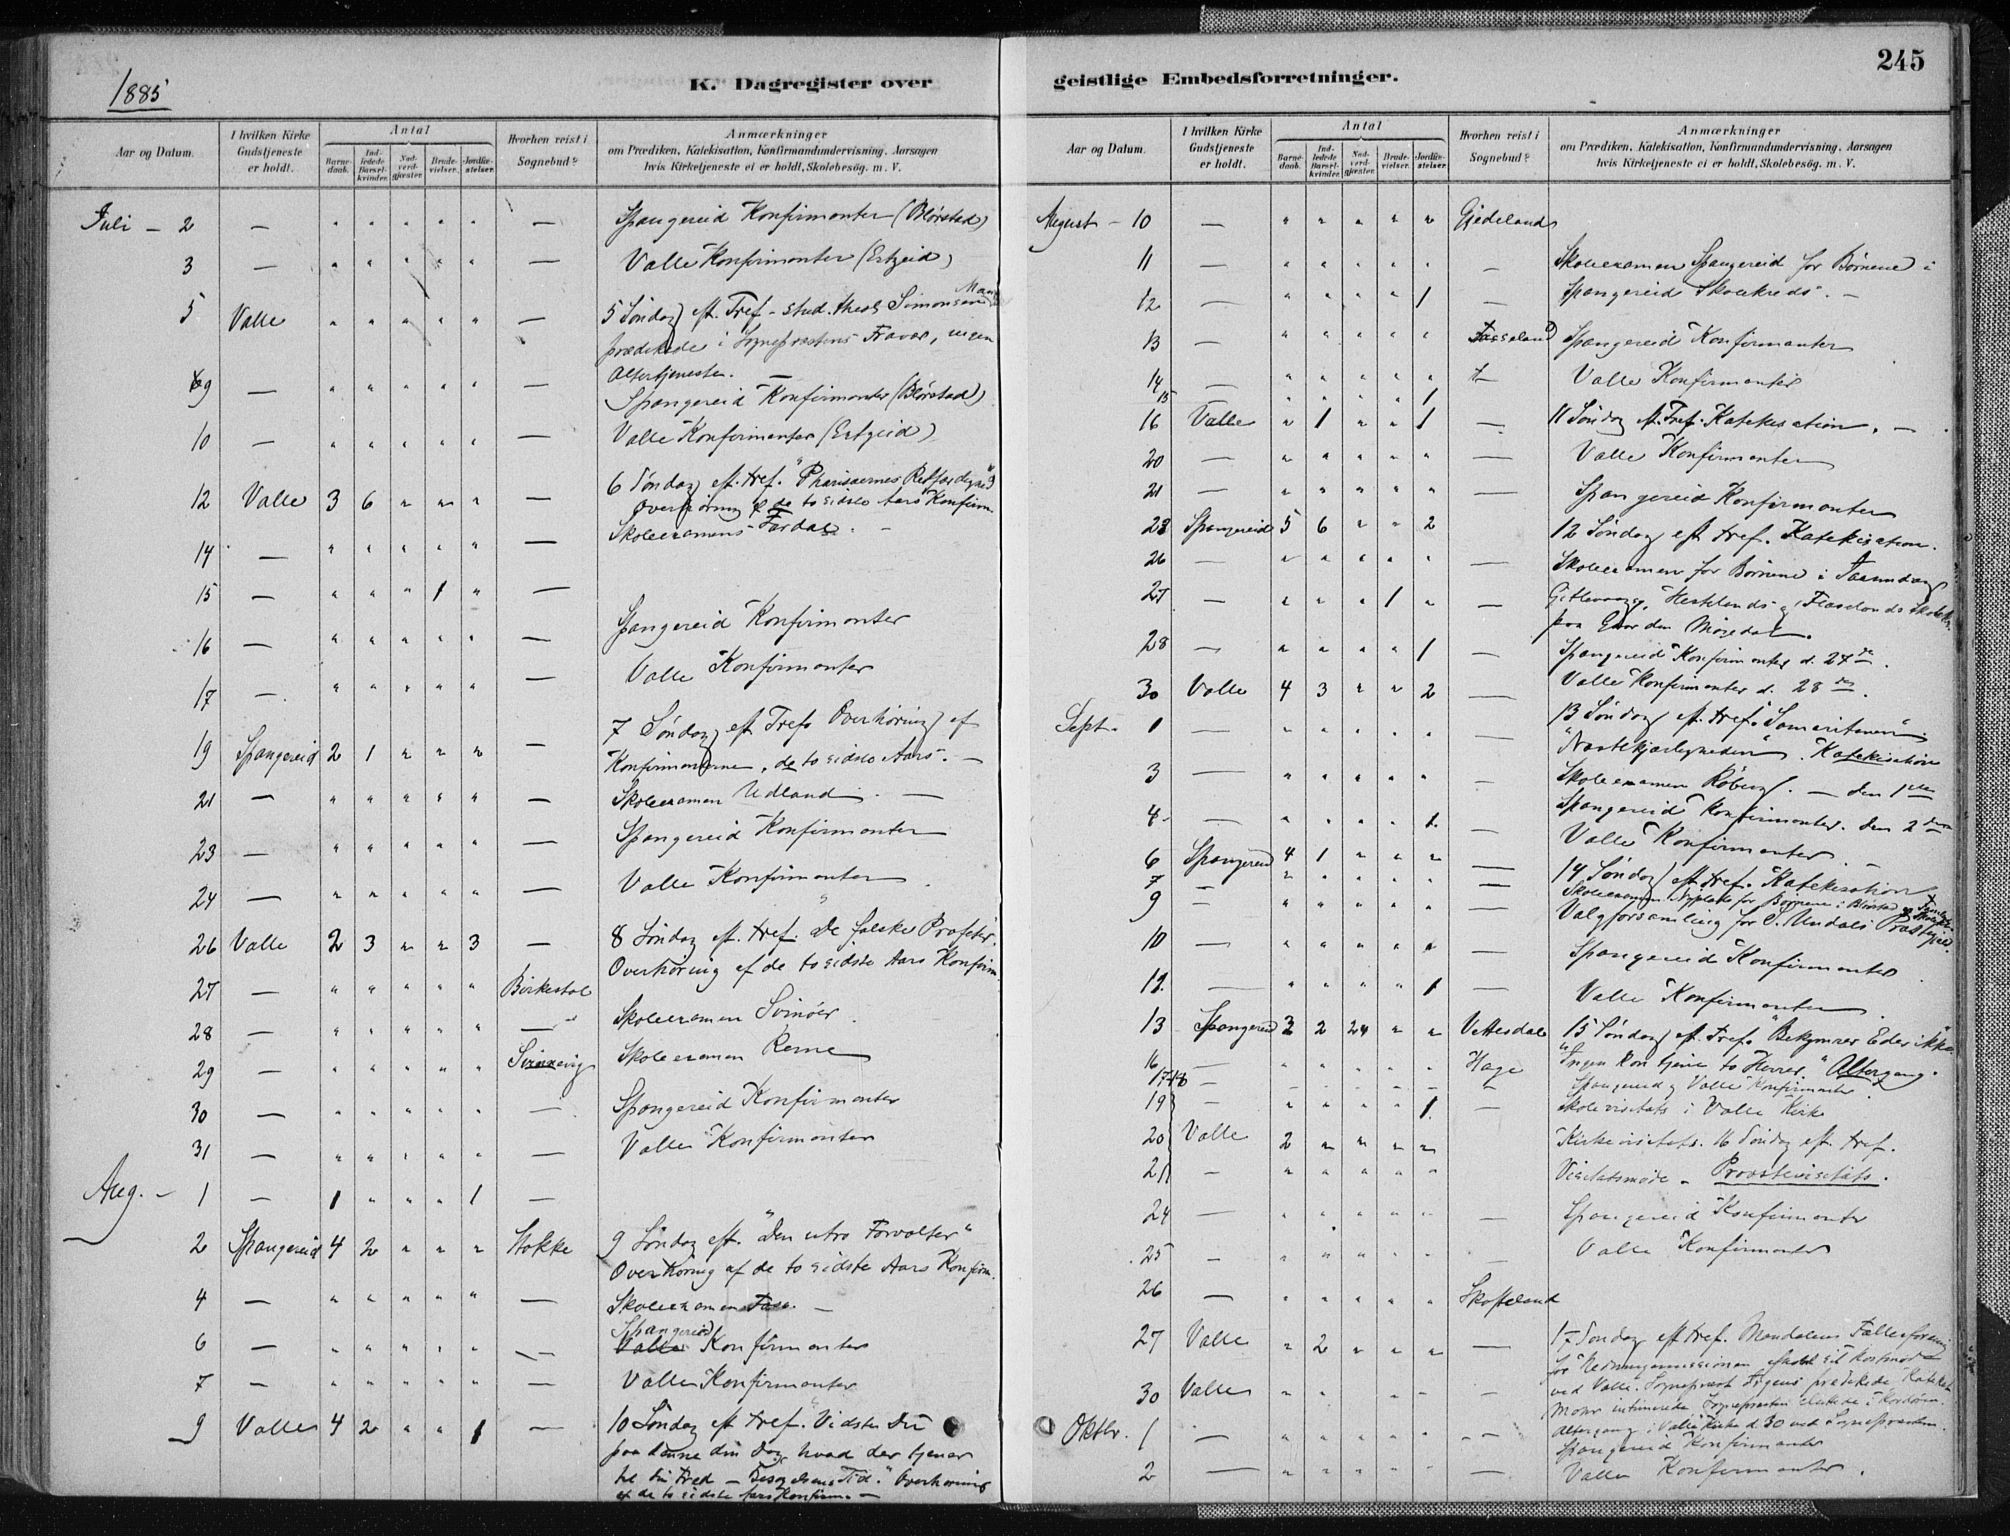 1885
K. Dagregister over
Aar og Datum.
I hvilken Kirke Gudstjeneste er holdt.
Antal
Barne-daab.
Ind-ledede Barsel-kvinder.
Nad-verd-gjæster.
Brude-vielser.
Jordfæ-stelser.
Hvorhen reist i Sognebud?
Anmærkninger
om Prædiken, Katekisation, Konfirmandundervisning, Aarsagen
hvis Kirketjeneste ei er holdt, Skolebesög. m. V.
Juli - 2 — " " " " " — Spangereid Konfirmanter (Blørstad)
3 — " " " " " — Valle Konfirmanter
5 Valle " " " " " — 5 Søndag eft. Tref - stud. theol. Simonsen
prædikede i Sognepræstens Fravær, ingen
Altertjeneste.
9 — " " " " " — Spangereid Konfirmanter (Blørstad)
10 — " " " " " — Valle Konfirmanter
12 Valle 3 6 " " " — 6 Søndag eft. tref. "Pharisæernes Retfærdighed"
Overhøring af de to sidste Aars Konfirm.
14 — " " " " " — Skoleexamens
15 — " " " 1 " —
16 — " " " " " — Spangereid Konfirmanter
17 — " " " " " — Valle Konfirmanter
19 Spangereid 2 1 " " " — 7 Søndag eft Tref. Overhøring af
Konfirmanterne, de to sidste Aars. —
21 — " " " " " — Skoleexamen Udland —
23 — " " " " " — Spangereid Konfirmanter
24 — " " " " " — Valle Konfirmanter
26 Valle 2 3 " " 3 — 8 Søndag eft. tref. "De falske Profeter.
Overhøring af de to sidste Aars Konfirm.
27 — " " " " " Birkestol
28 — " " " " " — Skoleexamen Svinøer
29 — " " " " " Skoleexamen Rerne
30 — " " " " " — Spangereid Konfirmanter
31 — " " " " " — Valle Konfirmanter
Aug. - 1 — 1 " " " 1 —
2 Spangereid 4 2 " " " Stokke 9 Søndag eft. "Den utro Forvalter"
Overhøring af de to sidste Aars Konfirm.
4 — " " " " " — Skoleexamen
Spangereid
6 — " " " " " — Valle Konfirmanter
7 — " " " " " Valle Konfirmanter
9 Valle 4 2 " " 1 — 10 Søndag eft tref. "Vidste Du
paa denne din Dag, hvad der tjener
til din Fred — Besøgelsens Tid." Overhøring
af de to sidste Aars Konfirm. —
245
geistlige Embedsforretninger.
Aar og Datum.
I hvilken Kirke Gudstjeneste er holdt.
Antal
Barne-daab.
Ind-ledede Barsel-kvinder.
Nad-verd-gjæster.
Brude-vielser.
Jordfæ-stelser.
Hvorhen reist i Sognebud?
Anmærkninger
om Prædiken, Katekisation, Konfirmandundervisning, Aarsagen
hvis Kirketjeneste ei er holdt, Skolebesög. m. V.
August - 10 — " " " " " Gjedeland
11 — " " " " " — Skoleexamen Spangereid for Børnene i
12 — " " " " 1 — Spangereid Skolekreds. —
13 — " " " " " Spangereid Konfirmanter
14 — " " " " " Valle Konfirmanter
15 " " " " 1
16 Valle " 1 " " 1 — 11 Søndag eft. Tref. Katekisation. —
20 — " " " " " — Valle Konfirmanter
21 — " " " " " — Spangereid Konfirmanter
23 Spangereid 5 6 " " 2 12 Søndag eft tref. Katekisation.
26 — " " " " " — Skoleexamen for Børnene i
27 — " " " 1 " —
paa Gaarden
28 — " " " " 1 — Spangereid Konfirmanter d. 27de.
30 Valle 4 3 " " 2 — Valle Konfirmanter d. 28de.
Sept. 1 — " " " " " — 13 Søndag eft. tref. "Samaritanen"
"Næstekjærligheden". Katekisation
3 — " " " " " — Skoleexamen — den 1ste
4 — " " " " 1 — Spangereid Konfirmanter. den 2den
Valle Konfirmanter. —
6 Spangereid 4 1 " " " — 14 Søndag eft tref. Katekisation
7 — " " " " " — Skoleexamen for Børnene i
9 — " " " " " — Valgforsamling for S. Undals Præstegjeld.
10 — " " " " " — Spangereid Konfirmanter
12 — " " " " 1 — Valle Konfirmanter
13 Spangereid 3 2 24 " " Vittesdal 15 Søndag eft. Tref. "Bekymrer Eder ikke"
16 — Hage "Ingen kan tjene to Herrer." Altergang.
17-18 — " " " " " — Spangereid og Valle Konfirmanter
19 — " " " " 1 — Skolevisitats i Valle Kirke
20 Valle 2 " " " " Kirkevisitats. 16 Søndag eft. tref.
21 — " " " " " Visitatsmøde - Provstevisitats.
24 — " " " " " — Spangereid Konfirmanter
25 — " " " " " — Valle Konfirmanter
26 — " " " " " Skofteland
27 Valle " 2 " " " — 17 Søndag eft tref. Mandalens Fællesforening
for Hedningemissionen
ved Valle. Sognepræst prædikede
30 Valle " " " " " Mohr Sognepræsten
Altergang i Valle Kirke d. 30
Oktbr. 1 — " " " " " — Spangereid Konfirmanter
2 — " " " " " — Valle Konfirmanter.